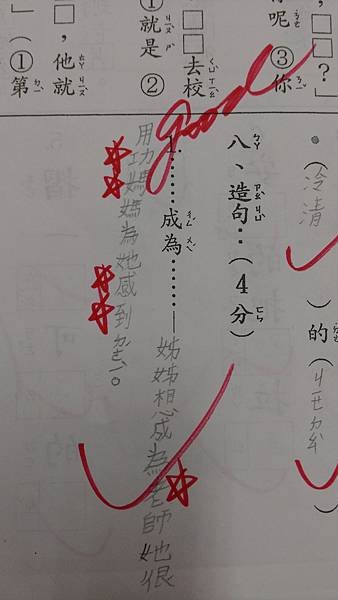 ，□□？」
呢③你
□□去校
①就是②
□，他就
」（①第
•（冷清）的（ㄐㄧㄝㄉㄠ）
八、造句：（4分）
Good
1.………成為………—姊姊想成為老師她很
用功媽媽為她感到ㄉㄜˊㄧˋ。